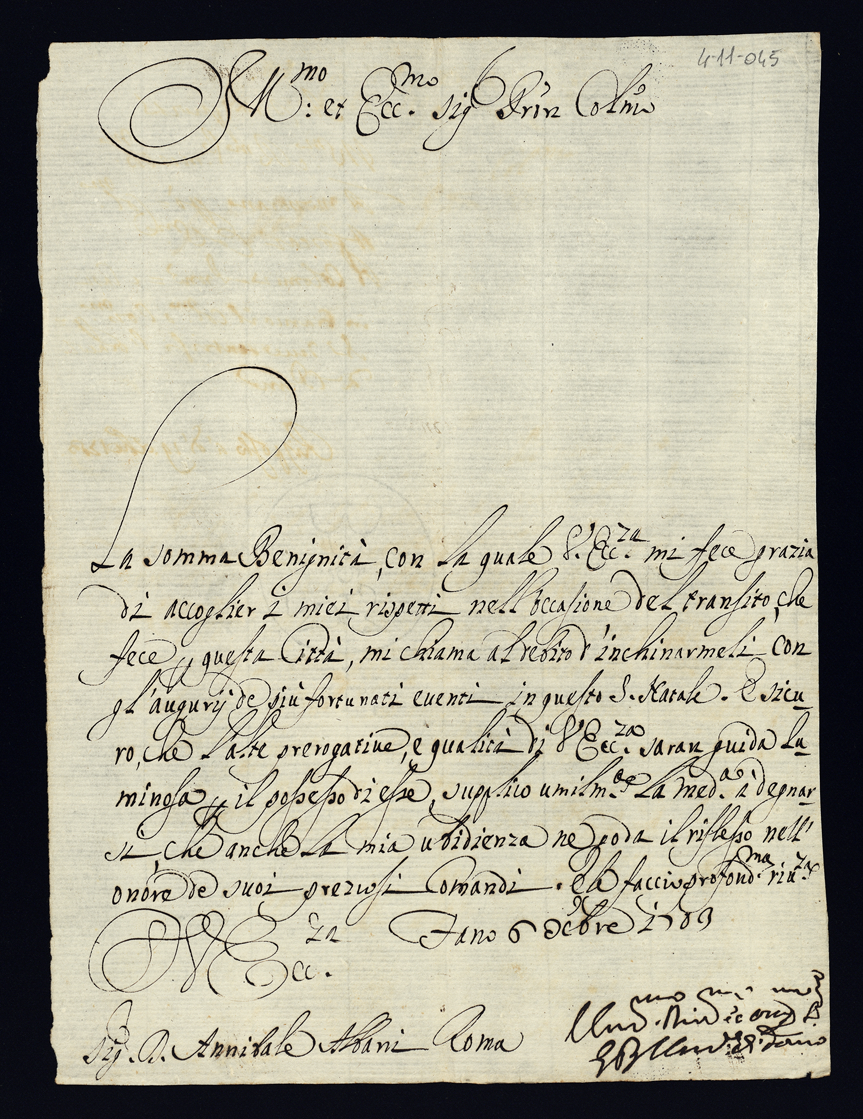 4-11-045
Ill.mo: et Ecc.mo Sig.r Prin Colmo
La somma Benignità, con la quale V. Ecc.za mi fece grazia
di accoglier i miei rispetti nell'occasione del transito, che
fece per questa Città, mi chiama al debito d'inchinarmeli con
gl'augurij de più fortunati eventi in questo S. Natale. E sicu-
ro, che l'alte prerogative, e qualità di V. Ecc.za saran guida lu-
minosa per il possesso di esse, supplico umilm.te la med.a à degnar-
si, che anche la mia ubidienza ne goda il riflesso nell'
onore de suoi preziosi Comandi. E le faccio profond.ma riu.za
D. V. Ecc.za Fano 6 Xcbre 1703
Sig. D. Annibale Albani Roma
Um.mo